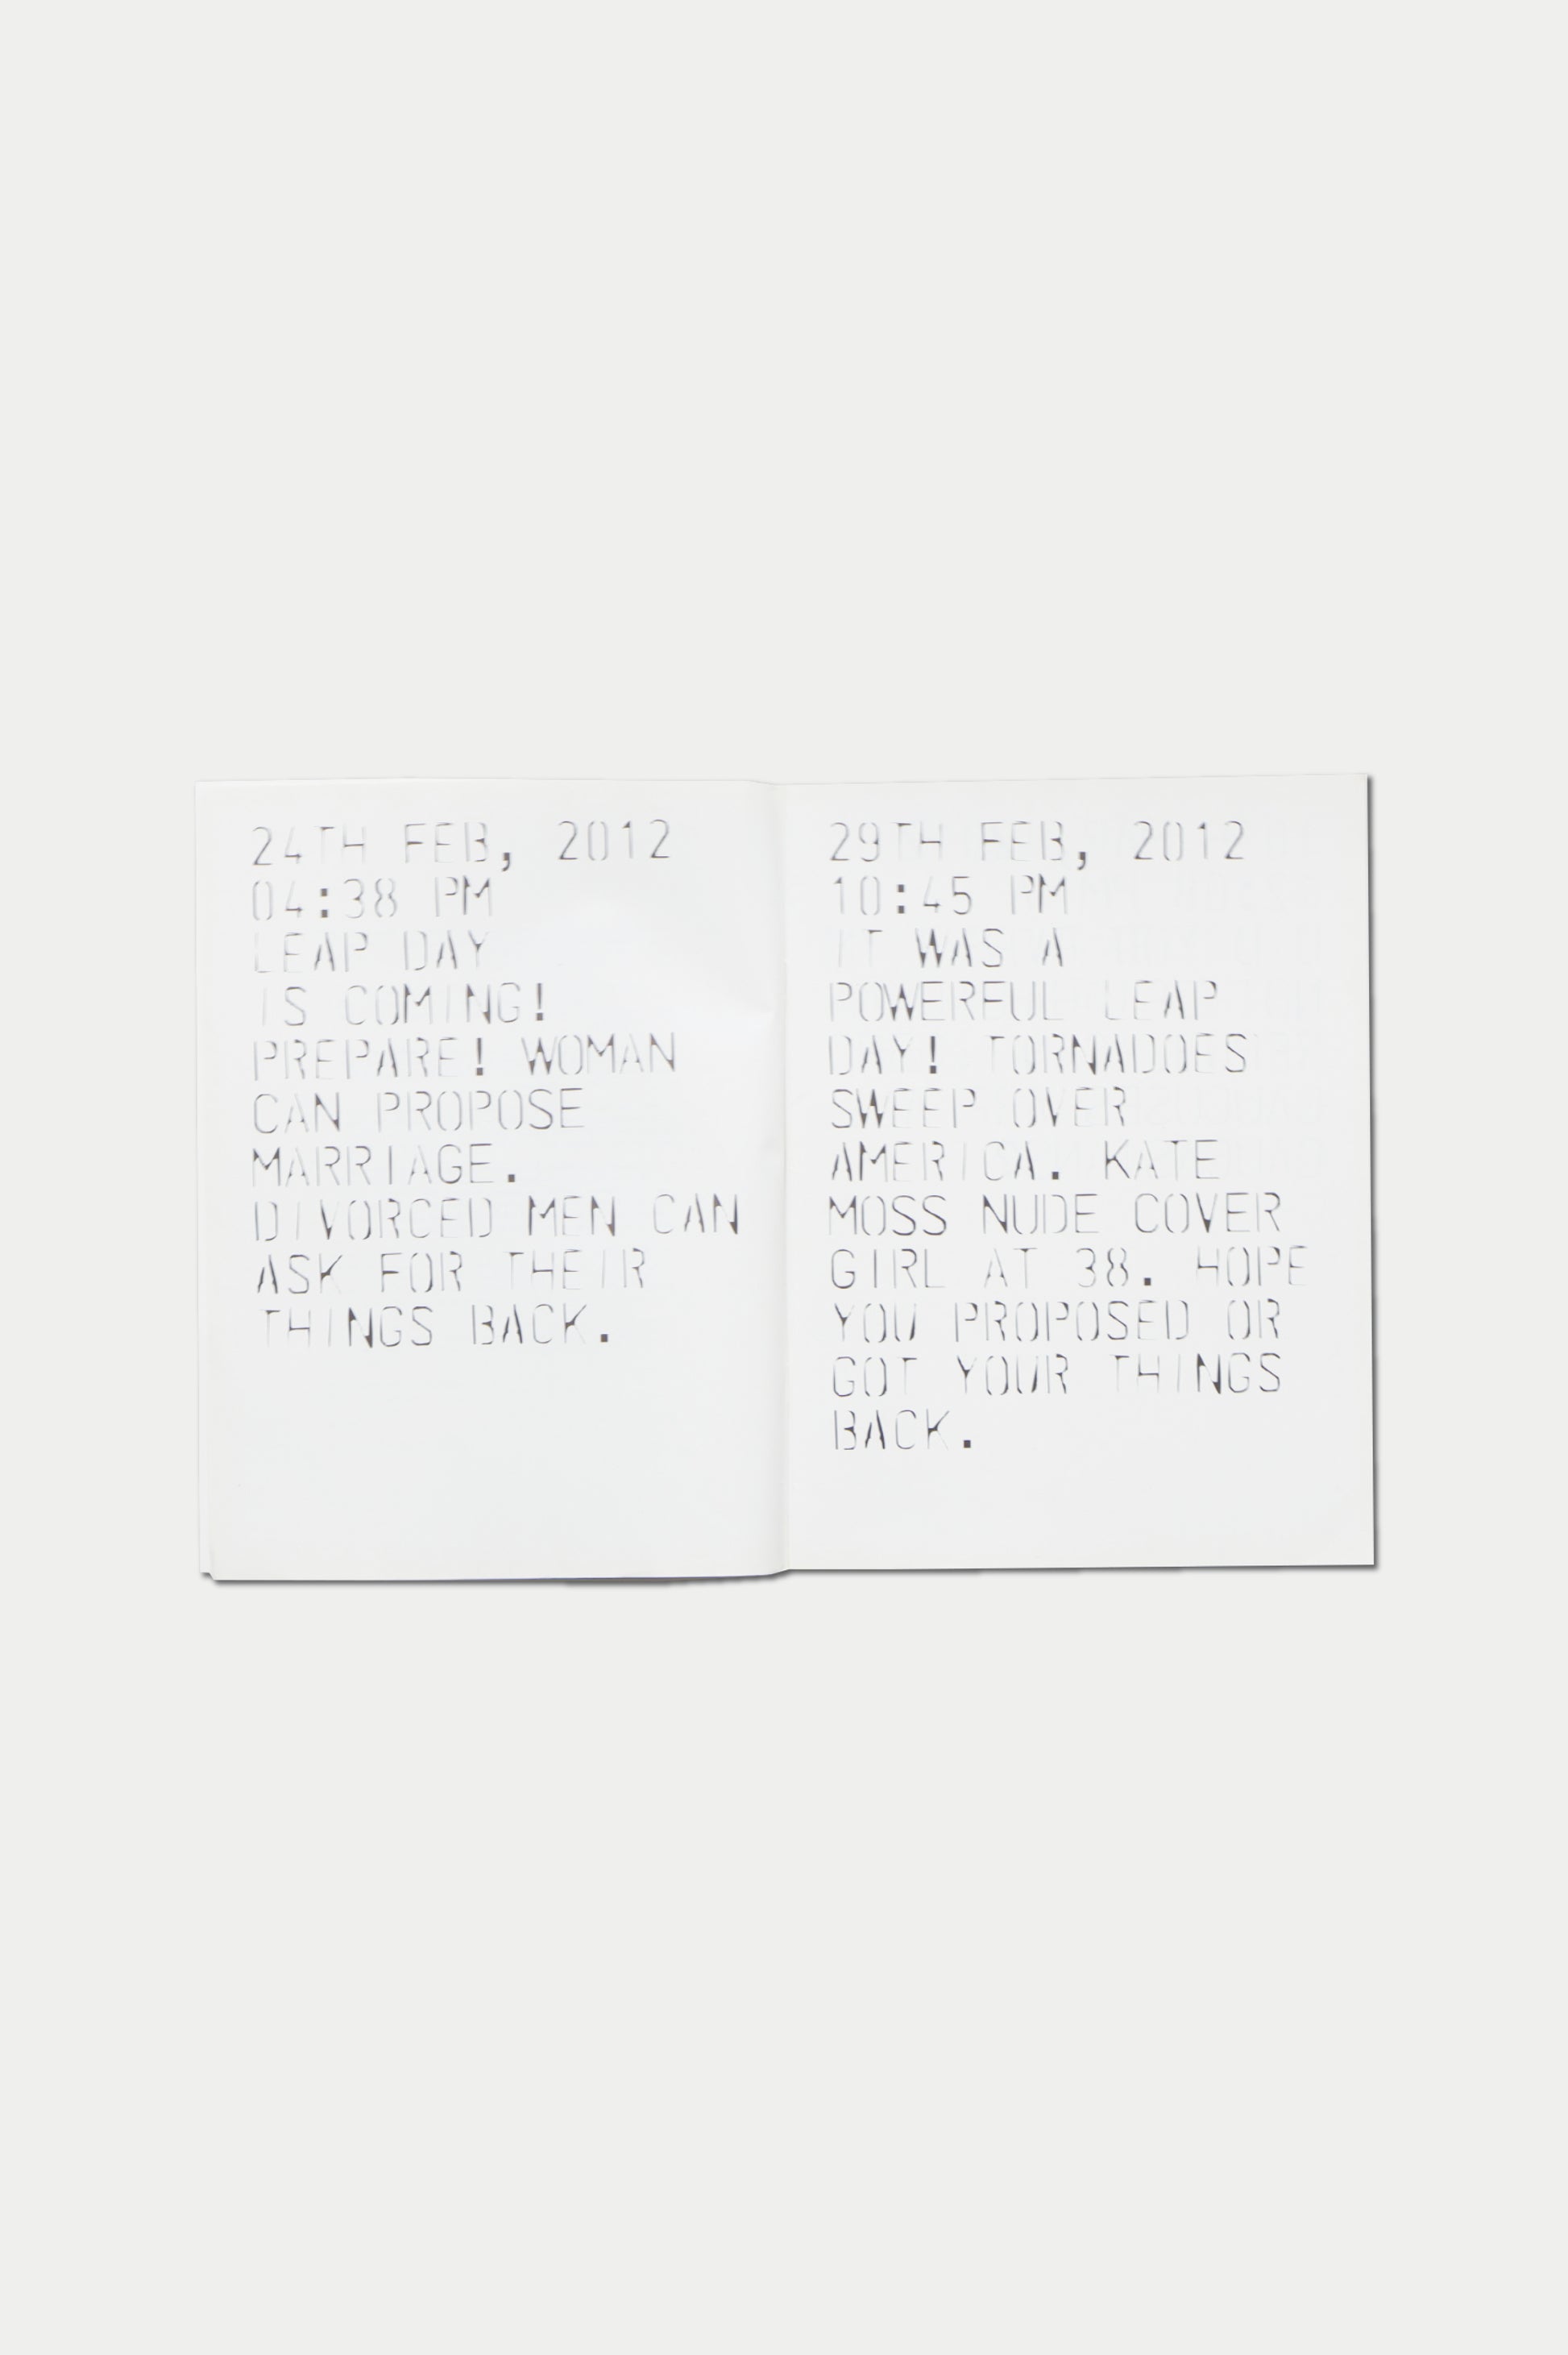 24TH FEB, 2012
04:38 PM
LEAP DAY
IS COMING!
PREPARE! WOMAN
CAN PROPOSE
MARRIAGE.
DIVORCED MEN CAN
ASK FOR THEIR
THINGS BACK.
29TH FEB, 2012
10:45 PM
IT WAS A
POWERFUL LEAP
DAY! TORNADOES
SWEEP OVER
AMERICA. KATE
MOSS NUDE COVER
GIRL AT 38. HOPE
YOU PROPOSED OR
GOT YOUR THINGS
BACK.